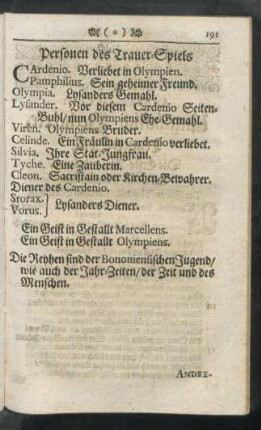 ( o ) 191
Personen des Trauer-Spiels
CArdenio. Verliebet in Olympien.
Pamphilius. Sein geheimer Freund.
Olympia. Lysanders Gemahl.
Lysander. Vor diesem Cardenio Seiten-
Buhl/ nun Olympiens Ehe-Gemahl.
Viren. Olympiens Bruder.
Celinde. Ein Fräulin in Cardenio verliebet.
Silvia. Ihre Stat-Jungfrau.
Tyche. Eine Zauberin.
Cleon. Sacristain oder Kirchen-Bewahrer.
Diener des Cardenio.
Storax.
Vorus. Lysanders Diener.
Ein Geist in Gestallt Marcellens.
Ein Geist in Gestallt Olympiens.
Die Reyhen sind der Bononiensischen Jugend/
wie auch der Jahr-Zeiten/ der Zeit und des
Menschen.
ANDRE-